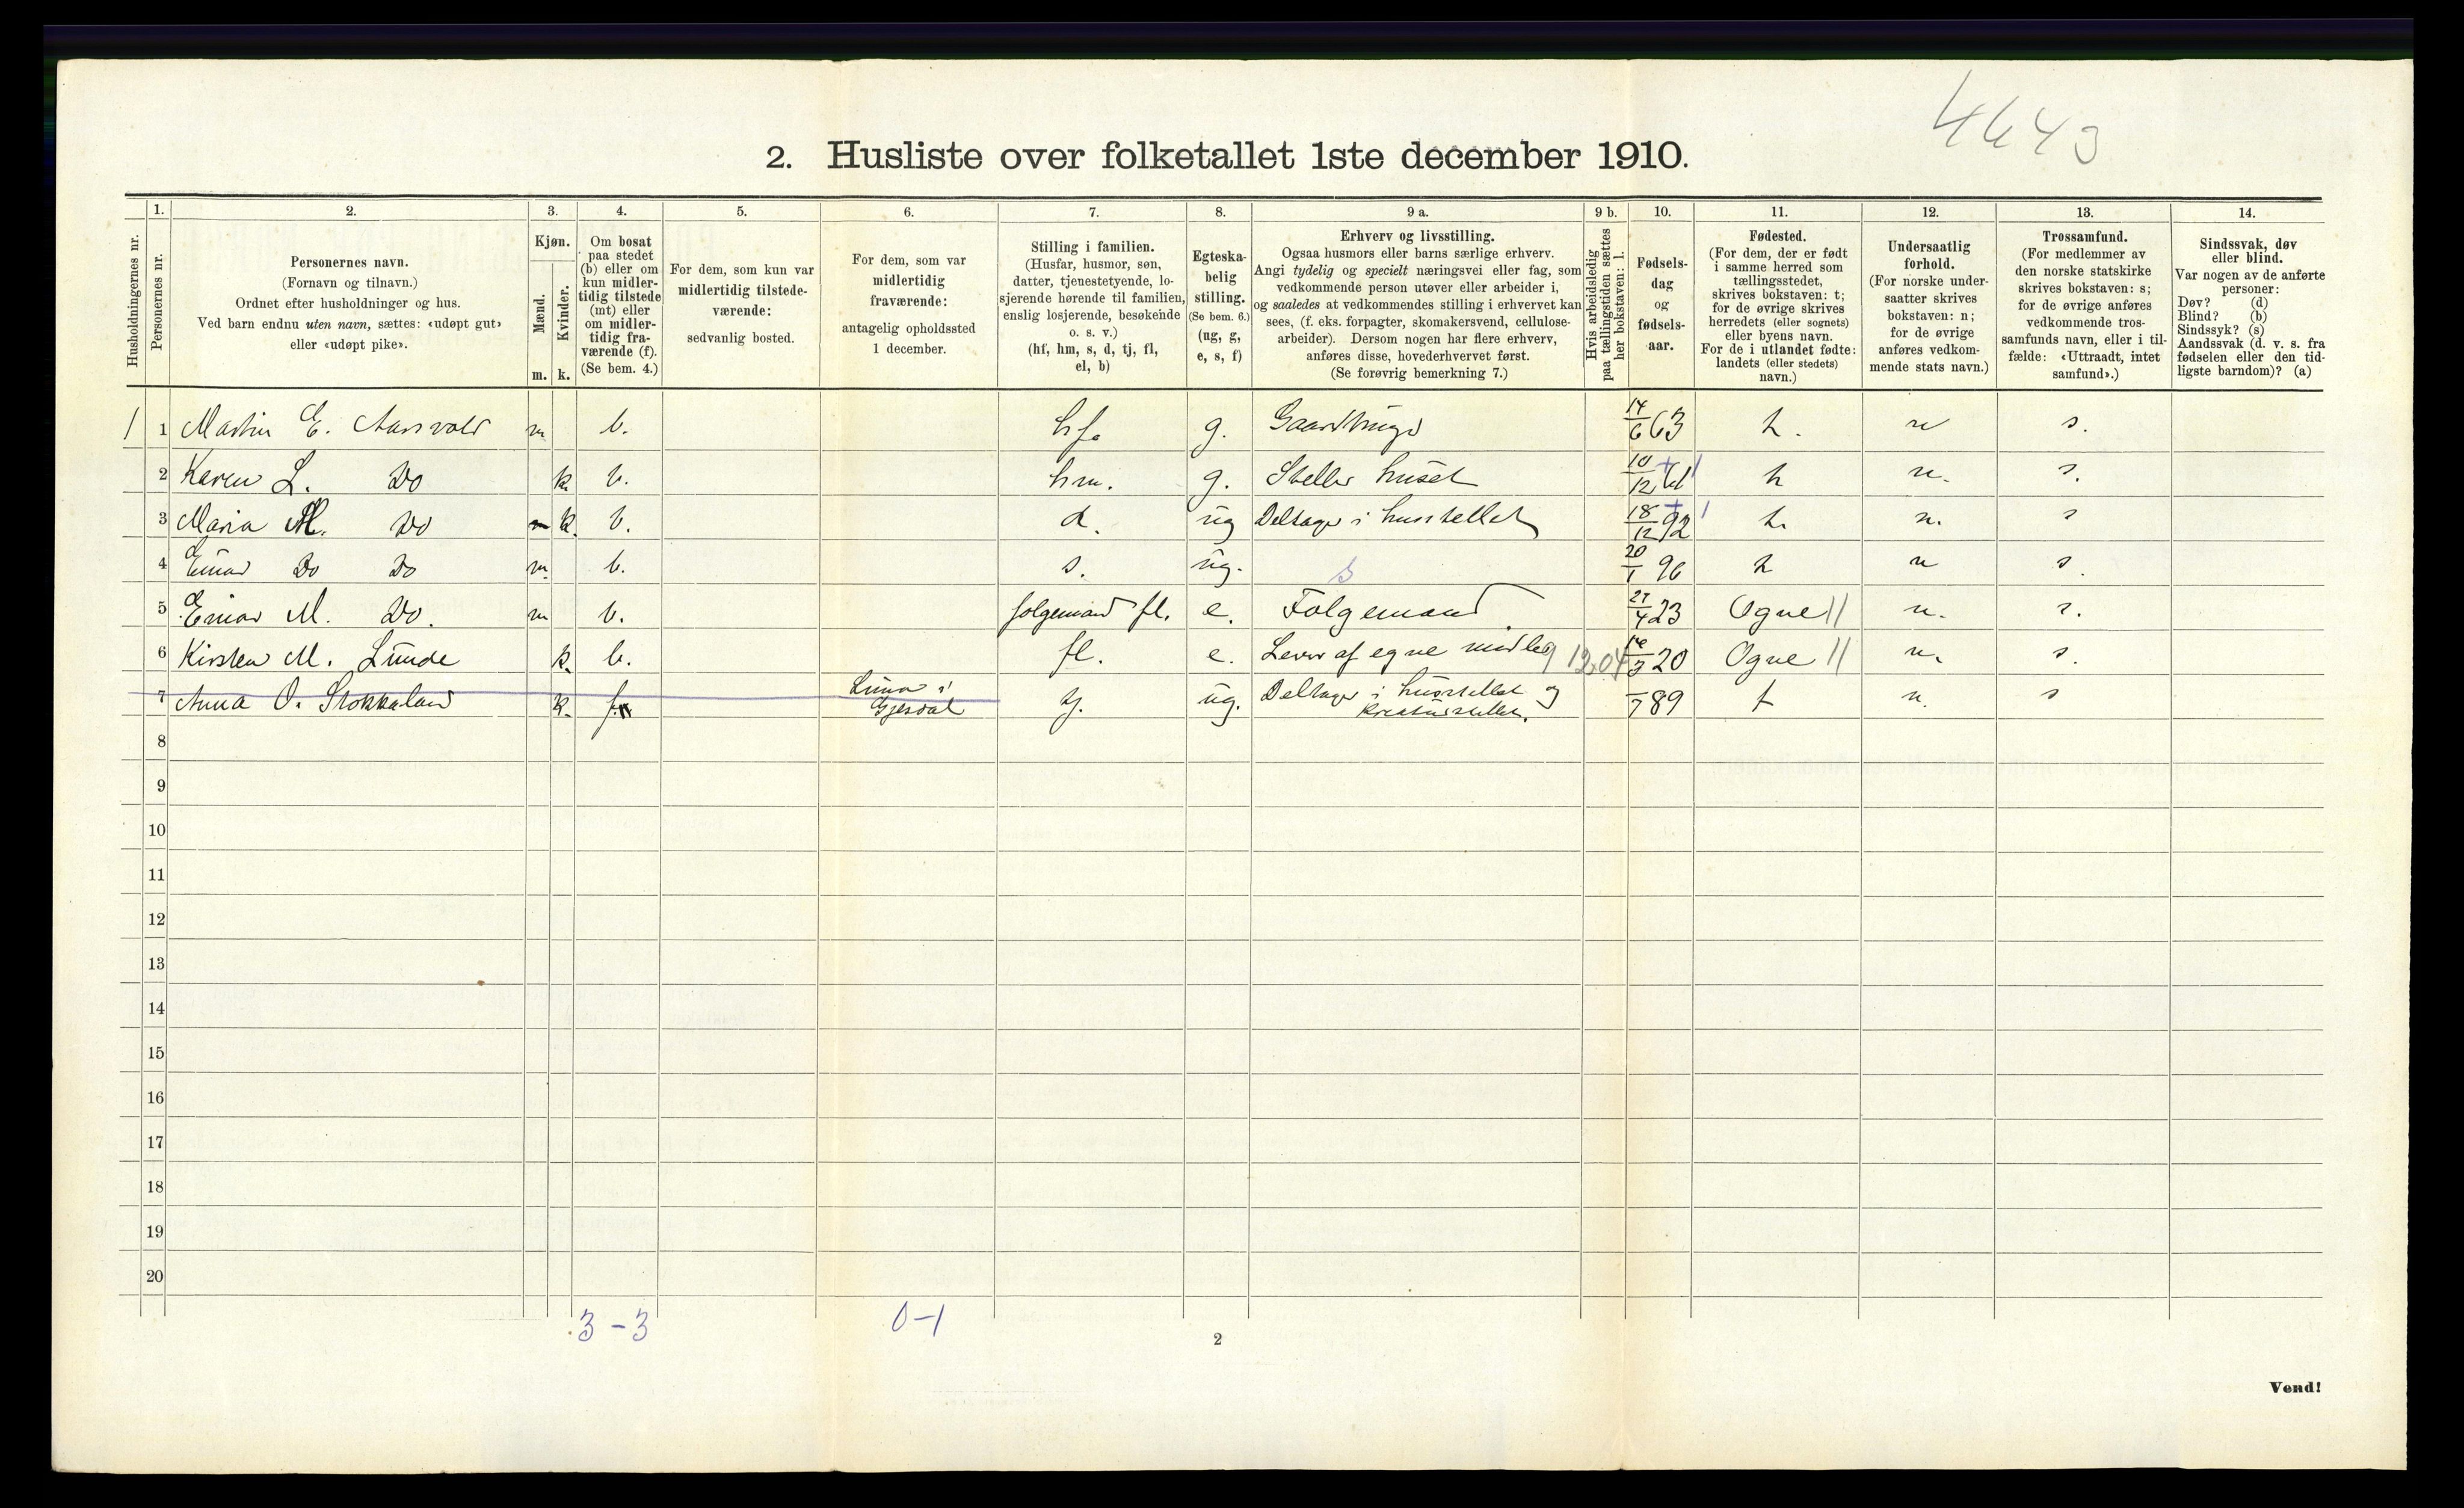 4643
2. Husliste over folketallet 1ste december 1910.
Husholdningernes nr.
1.
Personernes nr.
2.
Personernes navn.
(Fornavn og tilnavn.)
Ordnet efter husholdninger og hus.
Ved barn endnu uten navn, sættes: «udøpt gut»
eller «udøpt pike».
3.
Kjøn.
Mænd.
Kvinder.
m. k.
4.
Om bosat
paa stedet
(b) eller om
kun midler-
tidig tilstede
(mt) eller
om midler-
tidig fra-
værende (f).
(Se bem. 4.)
5.
For dem, som kun var
midlertidig tilstede-
værende:
sedvanlig bosted.
6.
For dem, som var
midlertidig
fraværende:
antagelig opholdssted
1 december.
7.
Stilling i familien.
(Husfar, husmor, søn,
datter, tjenestetyende, lo-
sjerende hørende til familien,
enslig losjerende, besøkende
o. s. v.)
(hf, hm, s, d, tj, fl,
el, b)
8.
Egteska-
belig
stilling.
(Se bem. 6.)
(ug, g,
e, s, f)
9 a.
Erhverv og livsstilling.
Ogsaa husmors eller barns særlige erhverv.
Angi tydelig og specielt næringsvei eller fag, som
vedkommende person utøver eller arbeider i,
og saaledes at vedkommendes stilling i erhvervet kan
sees, (f. eks. forpagter, skomakersvend, cellulose-
arbeider). Dersom nogen har flere erhverv,
anføres disse, hovederhvervet først.
(Se forøvrig bemerkning 7.)
9 b.
Hvis arbeidsledig
paa tællingstiden sættes
her bokstaven: l.
10.
Fødsels-
dag
og
fødsels-
aar.
11.
Fødested.
(For dem, der er født
i samme herred som
tællingsstedet,
skrives bokstaven: t;
for de øvrige skrives
herredets (eller sognets)
eller byens navn.
For de i utlandet fødte:
landets (eller stedets)
navn.)
12.
Undersaatlig
forhold.
(For norske under-
saatter skrives
bokstaven: n;
for de øvrige
anføres vedkom-
mende stats navn.)
13.
Trossamfund.
(For medlemmer av
den norske statskirke
skrives bokstaven: s;
for de øvrige anføres
vedkommende tros-
samfunds navn, eller i til-
fælde: «Uttraadt, intet
samfund».)
14.
Sindssvak, døv
eller blind.
Var nogen av de anførte
personer:
Døv? (d)
Blind? (b)
Sindssyk? (s)
Aandssvak (d. v. s. fra
fødselen eller den tid-
ligste barndom)? (a)
1 1 Martin E. Aarsvold m b. hf. g. Gaardbruger 14/6 63 t. n s.
2 Karen L. Do k. b. hm. g. Steller huset 10/12 61 t n. s.
3 Maria M. Do k. b. d. ug Deltager i husstellet 18/12 92 t. n. s
4 Einar Do Do m. b. s. ug. 20/1 96 t n s.
5 Einar M. Do. m b. folgemand fl. e. Folgemand 27/4 23 Ogne n. s.
6 Kirsten M. Lunde k. b. fl. e. Lever af egne midler 20 Ogne n. s.
7 Anna O. Stokkaland k. f Lima i Gjesdal tj. ug. Deltager i husstellet og kreaturstellet. 89 t n. s
8
9
10
11
12
13
14
15
16
17
18
19
20
3-3 0-1
2
Vend!